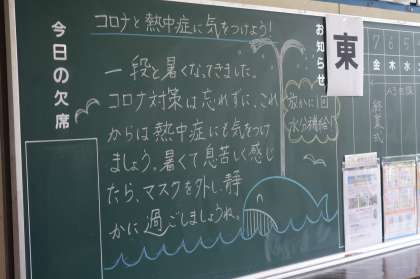 今日の欠席
コロナと熱中症に気をつけよう!
一段と暑くなってきました。
コロナ対策は忘れずに、これ
からは熱中症にも気をつけ
ましょう。暑くて息苦しく感じ
たら、マスクを外し、静
かに過ごしましょうね。
お知らせ
放かに1回
水分補給!
東
7
金 木 水
終業式